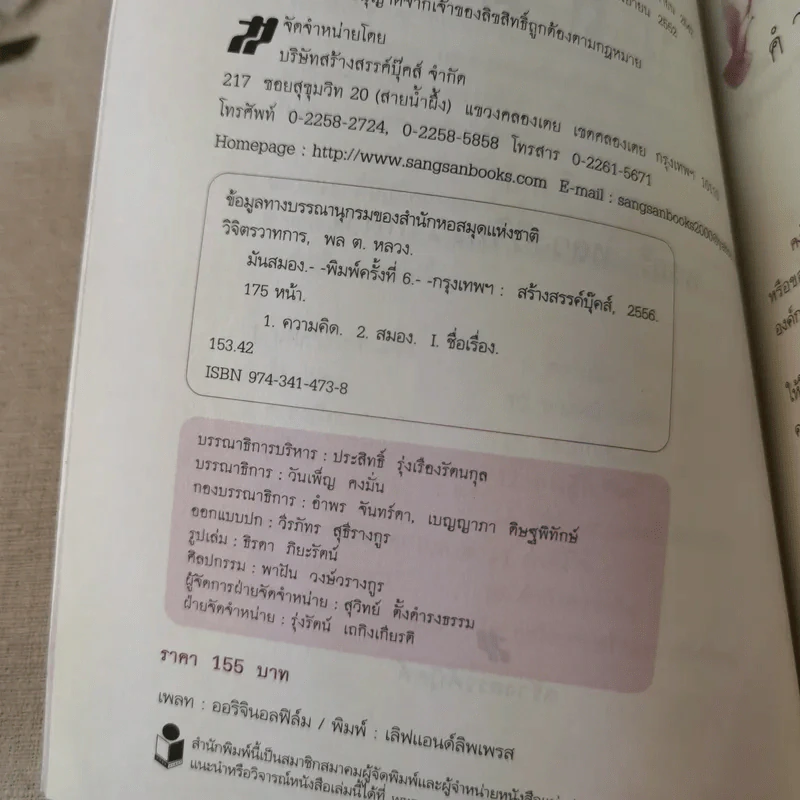 2552
ญาตจากเจ้าของลิขสิทธิ์ถูกต้องตามกฎหมาย
จัดจำหน่ายโดย
บริษัทสร้างสรรค์บุ๊คส์ จำกัด
217 ซอยสุขุมวิท 20 (สายน้ำผึ้ง) แขวงคลองเตย เขตคลองเตย กรุงเทพฯ 10110
โทรศัพท์ 0-2258-2724, 0-2258-5858 โทรสาร 0-2261-5671
Homepage : http://www.sangsanbooks.com E-mail : sangsanbooks2000@
ข้อมูลทางบรรณานุกรมของสำนักหอสมุดแห่งชาติ
วิจิตรวาทการ, พล ต. หลวง.
มันสมอง.- -พิมพ์ครั้งที่ 6.- -กรุงเทพฯ : สร้างสรรค์บุ๊คส์, 2556.
175 หน้า.
1. ความคิด. 2. สมอง. I. ชื่อเรื่อง.
153.42
ISBN 974-341-473-8
บรรณาธิการบริหาร : ประสิทธิ์ รุ่งเรืองรัตนกุล
บรรณาธิการ : วันเพ็ญ คงมั่น
กองบรรณาธิการ : อำพร จันทร์ดา, เบญญาภา ดิษฐพิทักษ์
ออกแบบปก : วีรภัทร สุธีรางกูร
รูปเล่ม : ธิรดา ภิยะรัตน์
ศิลปกรรม : พาฝัน วงษ์วรางกูร
ผู้จัดการฝ่ายจัดจำหน่าย : สุวิทย์ ตั้งดำรงธรรม
ฝ่ายจัดจำหน่าย : รุ่งรัตน์ เถกิงเกียรติ
ราคา 155 บาท
เพลท : ออริจินอลฟิล์ม / พิมพ์ : เลิฟแอนด์ลิพเพรส
สำนักพิมพ์นี้เป็นสมาชิกสมาคมผู้จัดพิมพ์และผู้จำหน่ายหนังสือ
แนะนำหรือวิจารณ์หนังสือเล่มนี้ได้ที่
หรือข
องค์ก